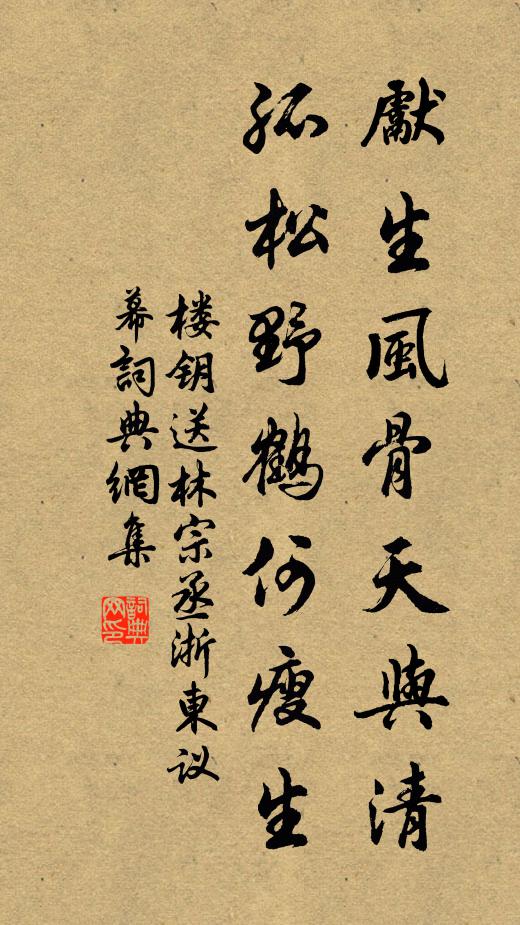 獻生風骨天與清
孤松野鶴何瘦生
楼钥送林宗丞浙東议
幕詞典網集
詞典
网印